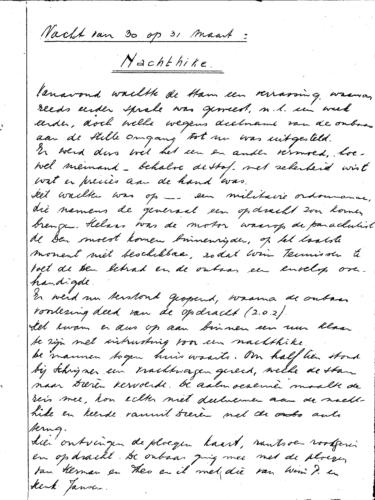 Nacht van 30 op 31 maart:
Nachthike.
Vanavond wachtte de stam een verrassing, waarvan
reeds eerder sprake was geweest, n.l. een week
eerder, doch welke wegens deelname van de oubaas
aan de Stille Omgang tot nu was uitgesteld.
Er werd dus wel het een en ander vermoed, hoe-
wel niemand - behalve de staf - met zekerheid wist
wat er precies aan de hand was.
Het wachten was op --- een militaire ordonnans,
die namens de generaal een opdracht zou komen
brengen. Helaas was de motor waarop de parachutist
de Den moest komen binnenrijden, op het laatste
moment niet beschikbaar, zodat Wim Teunissen te
voet de Den betrad en de oubaas een envelop over-
handigde.
Er werd nu terstond geopend, waarna de oubaas
voorlezing deed van de opdracht (z.o.z.)
Het kwam er dus op aan binnen een uur klaar
te zijn met uitrusting voor een nachthike.
De mannen togen huiswaarts. Om half tien stond
bij een vrachtwagen gereed, welke de stam
naar Dieren vervoerde. De aalmoezenier maakte de
reis mee, kon echter niet deelnemen aan de nacht-
hike en keerde vanuit Dieren met de auto
terug.
Hier ontvingen de ploegen kaart, rantsoen
en opdracht. De oubaas ging mee met de ploegen
van Herman en Theo en ik met die van Wim P. en
Henk Jansen.